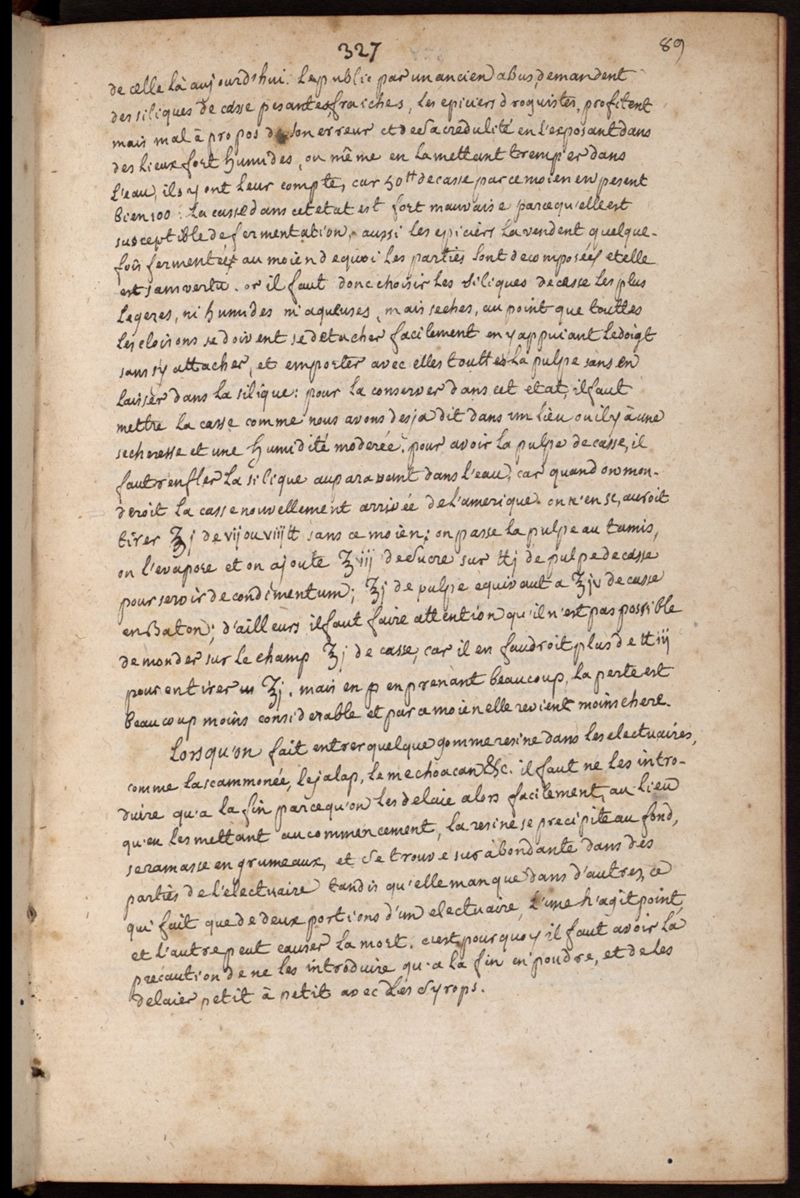 327
89
de celle là aujourd'hui. le public par un ancien abus, demandent
des siliques de casse pesantes, fraiches, les epiciers droguistes, profitent
mais mal à propos de son erreur et de sa credulité en l'exposant dans
des lieux fort humides, ou même en la mettant tremper dans
l'eau, ils y ont leur compte, car 50 ℔ de casse par ce moien en pesent
bien 100: la casse dans cet etat est fort mauvaise parcequ'elle est
susceptible de fermentation, aussi les epiciers la vendent quelque-
fois fermentée au moien de quoi les parties sont decomposées et elle
est sans vertu. or il faut donc choisir les siliques de casse les plus
legeres, ni humides ni aqueuses, mais seches, au point que touttes
les cloisons se doivent se detacher facilement en y appuiant le doigt
sans s'y attacher, et emporter avec elles toutte la pulpe sans en
laisser dans la silique: pour la conserver dans cet etat, il faut
mettre la casse comme nous avons desja dit dans un lieu ou il y à une
secheresse et une humidité moderée. pour avoir la pulpe de casse, il
faut renfler la silique auparavant dans l'eau, car quand on mon-
deroit la casse nouvellement arrivée de l'amerique. on n'en sçauroit
tirer ℥j de vij ou viij ℔ sans ce moien: on passe la pulpe au tamis,
on l'evapore et on ajoute ℥iij de sucre sur ℔j de pulpe de casse
pour servir de condimentum; ℥j de pulpe equivaut a ℥jv de casse
en Baton; d'ailleurs il faut faire attention qu'il n'est pas possible
de monder sur le champ ℥j de casse, car il en faudroit plus de ℔iij
pour en tirer ℥j. mais en en prenant beaucoup, la perte est
beaucoup moins considerable et par ce moien elle revient moins chere.
Lorsqu'on fait entrer quelque gomme resine dans les electuaires,
comme la scammonée, le jalap, le mechoacan &c. il faut ne les intro-
duire qu'a la fin parcequ'on les delaie alors facilement, au lieu
qu'en les mettant au commencement, la resine se precipite au fond,
se ramasse en grumeaux, et se trouve surabondante dans des
partiès de l'electuaire tandis qu'elle manque dans d'autres, ce
qui fait que de deux portions d'un electuaire, l'une n'agit point,
et l'autre peut causer la mort. c'est pourquoy il faut avoir la
precaution de ne les introduire qu'a la fin en poudre, et de les
delaier petit à petit avec les syrops.